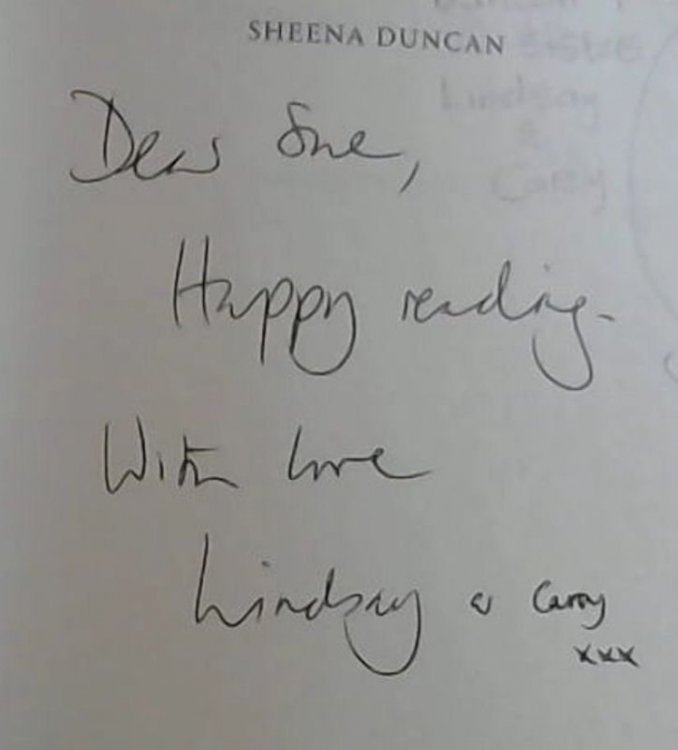 SHEENA DUNCAN
Dear Sue,
Happy reading.
With love
Lindsay & Carry
xxx
Lindsay
&